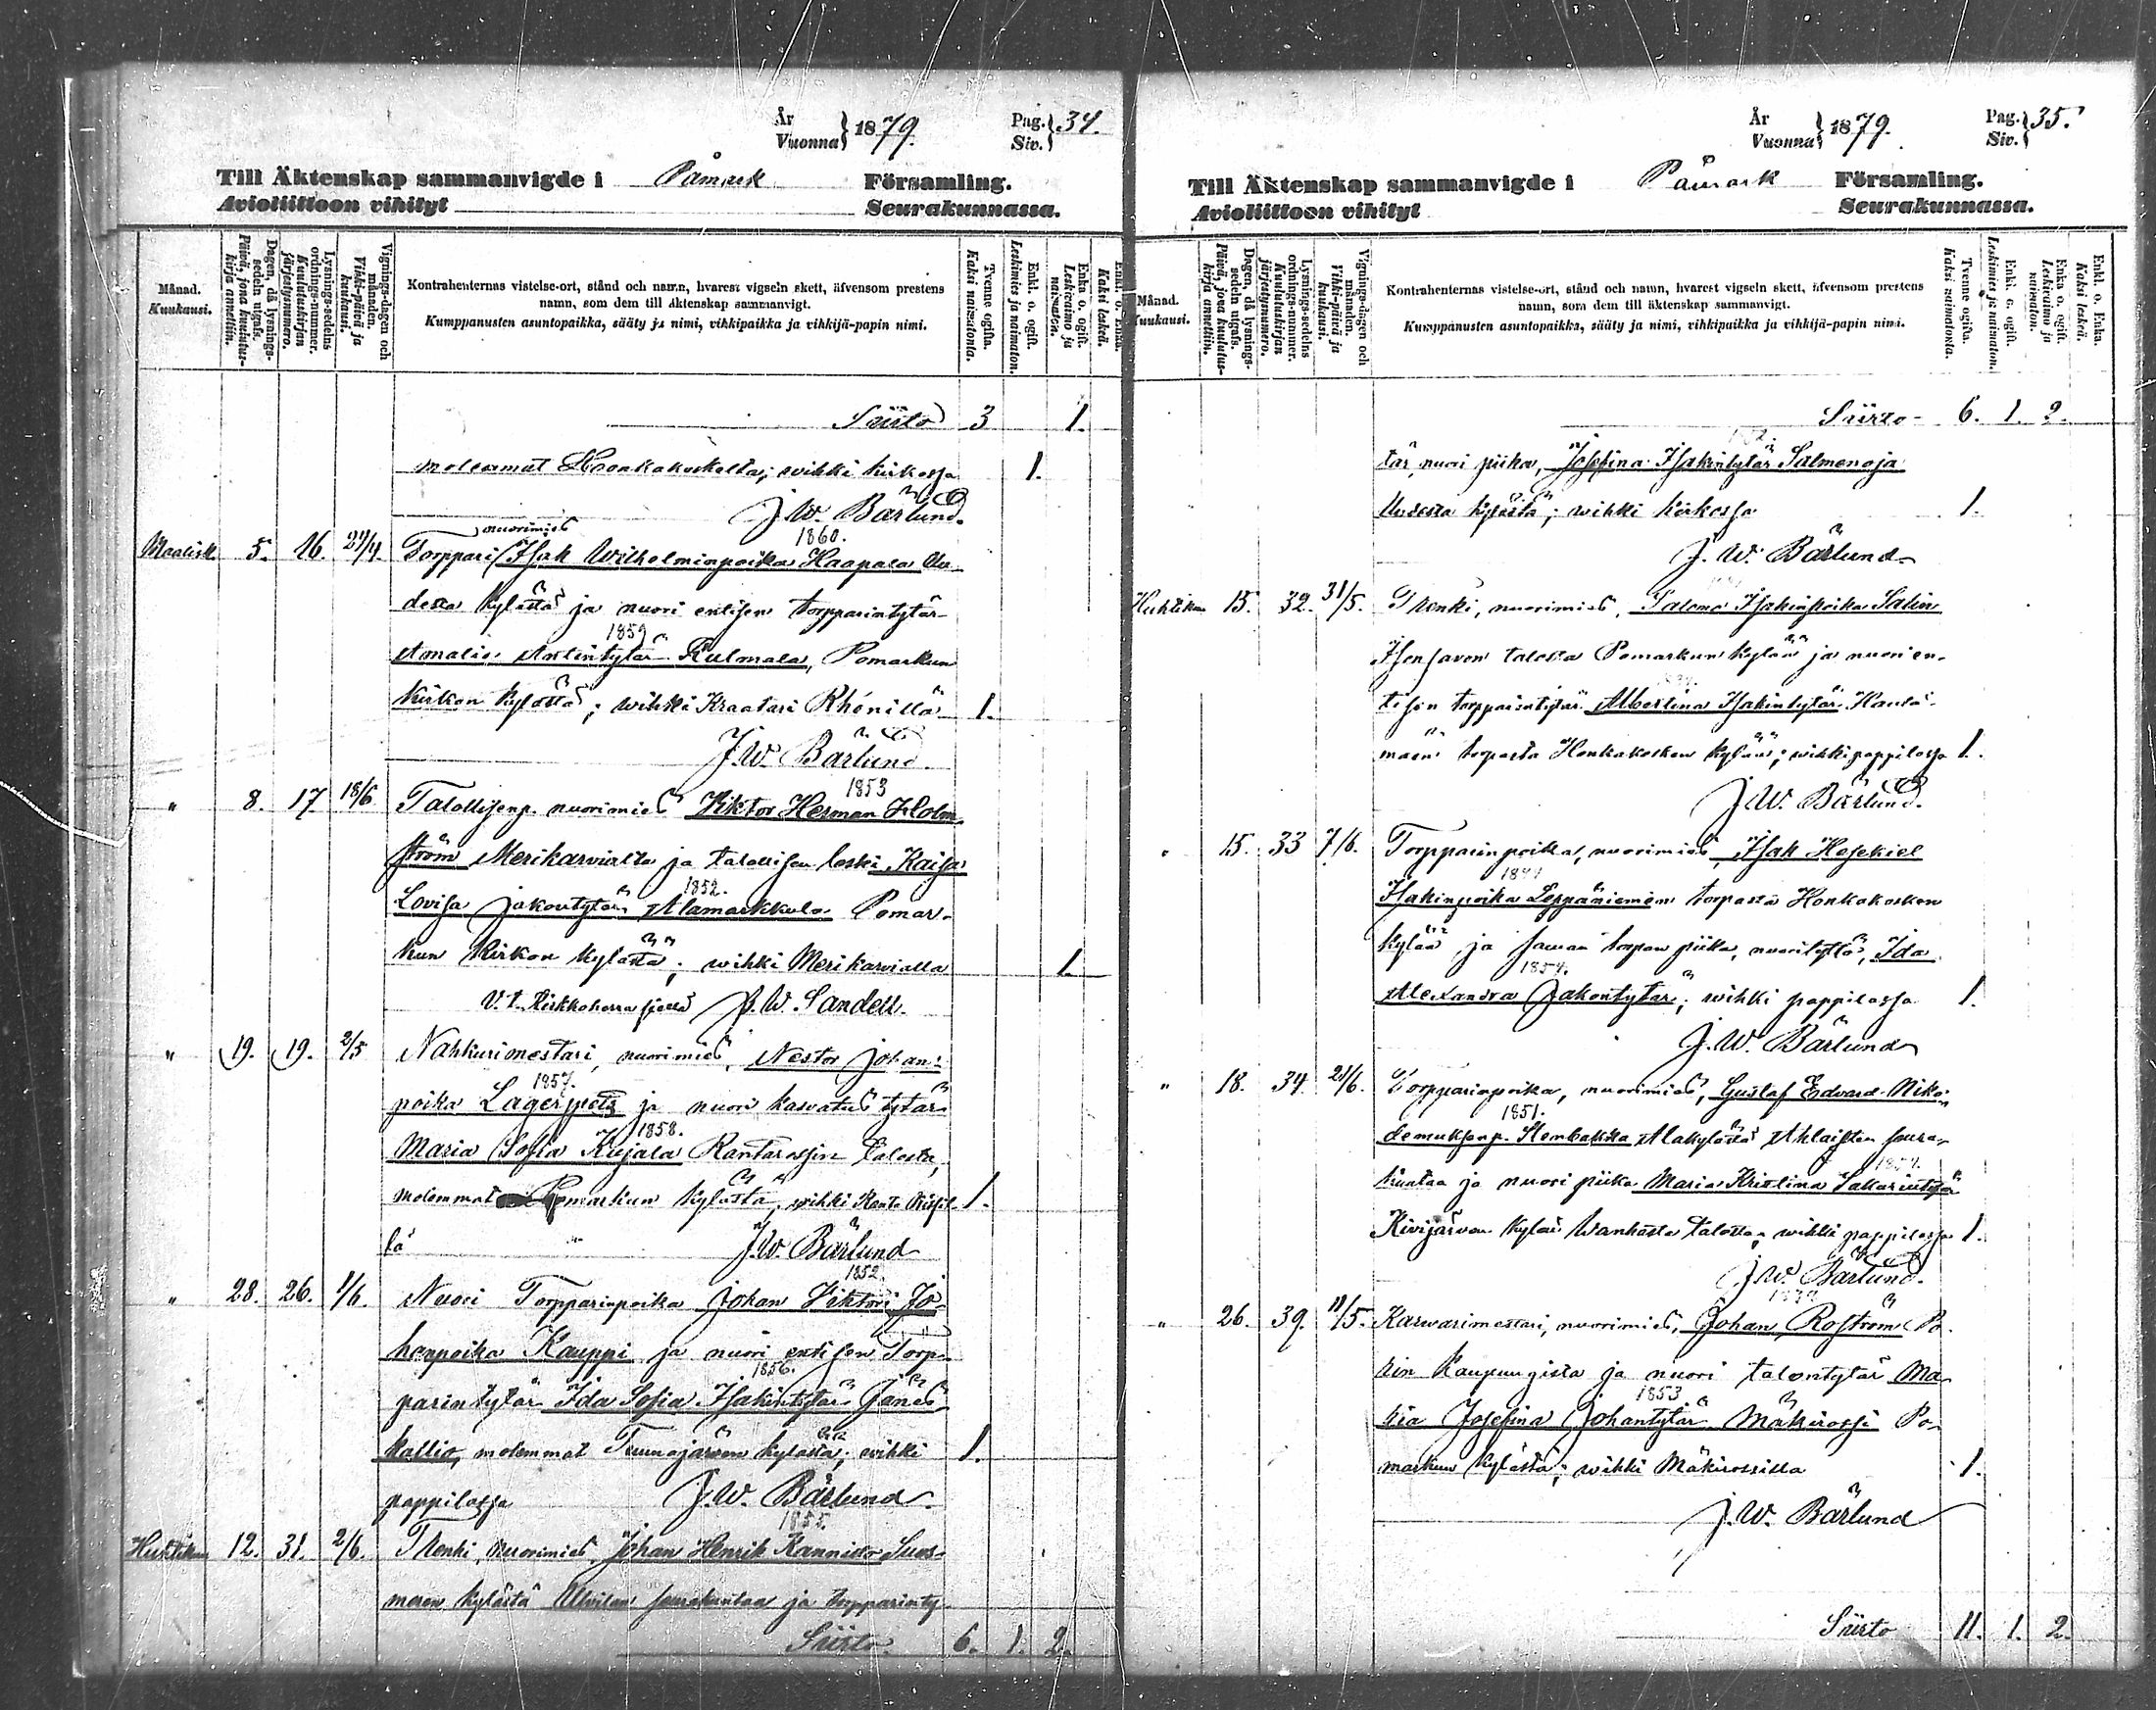 År
Vuonna } 1879.
Pag.
Siv. } 34.
Till Äktenskap sammanvigde i Påmark Församling.
Avioliittoon vihityt Seurakunnassa.
Månad.
Kuukausi.
Dagen, då lysnings-
sedeln utgafs.
Päivä, jona kuulutus-
kirja annettiin.
Lysnings-sedelns
ordnings-nummer.
Kuulutuskirjan
järjestysnumero.
Vignings-dagen och
månaden.
Vihki-päivä ja
kuukausi.
Kontrahenternas vistelse-ort, stånd och namn, hvarest vigseln skett, äfvensom prestens
namn, som dem till äktenskap sammanvigt.
Kumppanusten asuntopaikka, sääty ja nimi, vihkipaikka ja vihkijä-papin nimi.
Tvenne ogifta.
Kaksi naimatonta.
Enkl. o. ogift.
Leskimies ja naimaton.
Enka o. ogift.
Leskivaimo ja
naimaton.
Enkl. o. Enka.
Kaksi leskeä.
Siirto 3 1.
molemmat Honkakoskelta; wihki kirkossa 1.
J. W. Bärlund.
nuorimies 1860.
Maalisk. 5. 16. 27/4. Torppari Isak Wilhelminpoika Haapala Uu
desta kylästä ja nuori entisen torpparintytär
1859
Amalia Antintytär Kulmala, Pomarkun
Kirkon kylästä; wihki Kraatari Rhénillä 1.
J. W. Bärlund.
1853
" 8. 17. 18/6 Talollisenp. nuorimies Viktor Herman Holm
ström Merikarvialta ja talollisen leski Kaisa
1852.
Lovisa Jakontytär Alamarkkula Pomar-
kun Kirkon kylästä; wihki Merikarvialla 1.
V. t. Kirkkoherra siellä J. W. Sandell.
" 19. 19. 2/5 Nahkurimestari, nuorimies, Nestor Johan-
1857.
poika Lagerpets ja nuori kasvatus tytär
1858.
Maria Sofia Kujala Rantarossin talosta,
molemmat Pomarkun kylästä, wihki 1.
lä " J. W. Bärlund
1852.
" 28. 26. 1/6. Nuori Torpparinpoika Johan Viktori Jo-
hanpoika Kauppi ja nuori entisen Torp-
1856.
parintytär Ida Sofia Isakintytär Jänes
kallio, molemmat Tuunajärven kylästä; wihki 1.
pappilassa J. W. Bärlund.
1855.
Huhtikuu 12. 31. 2/6. Renki, nuorimies, Johan Henrik Kannisto Suos-
meren kylästä Ulvilan seurakuntaa ja torpparinty-
Siirto 6. 1. 2.
År
Vuonna } 1879.
Pag.
Siv. } 35.
Till Äktenskap sammanvigde i Påmark Församling.
Avioliittoon vihityt Seurakunnassa.
Månad.
Kuukausi.
Dagen, då lysnings-
sedeln utgafs.
Päivä, jona kuulutus-
kirja annettiin.
Lysnings-sedelns
ordnings-nummer.
Kuulutuskirjan
järjestysnumero.
Vignings-dagen och
månaden.
Vihki-päivä ja
kuukausi.
Kontrahenternas vistelse-ort, stånd och namn, hvarest vigseln skett, äfvensom prestens
namn, som dem till äktenskap sammanvigt.
Kumppanusten asuntopaikka, sääty ja nimi, vihkipaikka ja vihkijä-papin nimi.
Tvenne ogifta.
Kaksi naimatonta.
Enkl. o. ogift.
Leskimies ja naimaton.
Enka o. ogift.
Leskivaimo ja
naimaton.
Enkl. o. Enka.
Kaksi leskeä.
Siirto 6. 1. 2.
tär, nuori piika, Josefina Isakintytär Salmenoja
Uudesta kylästä; wihki kirkossa 1.
J. W. Bärlund
Huhtikuu 15. 32. 31/5. Renki, nuorimies, Salomo Isakinpoika Salin
Isonsavon talosta Pomarkun kylää ja nuori en-
tisen torpparintytär Albertina Isakintytär
mäen torpasta Honkakosken kylää; wihki pappilassa 1.
J. W. Bärlund.
" 15. 33 7/6. Torpparinpoika, nuorimies, Isak Hesekiel
Isakinpoika Leppäniemen torpasta Honkakosken
kylää, ja saman torpan piika, nuori tyttö, Ida
1857.
Alexandra Jakontytär; wihki pappilassa 1.
J. W. Bärlund
" 18. 34. 21/6. Torpparinpoika, nuorimies, Gustaf Edvard Niko-
1851.
demuksenp. Stenbakka Alakylästä Ahlaisten seura-
kuntaa ja nuori piika Maria Kristina Sakarintytär
Kivijärven kylän Wanhasta talosta; wihki pappilassa 1.
J. W. Bärlund.
" 26. 39. 11/5. Karwarimestari, nuorimies, Johan Roström Po-
rin Kaupungista ja nuori talontytär Ma-
1853
ria Josefina Johantytär Mäkirossi Po-
markun kylästä; wihki Mäkirossilla 1.
J. W. Bärlund
Siirto 11. 1. 2.